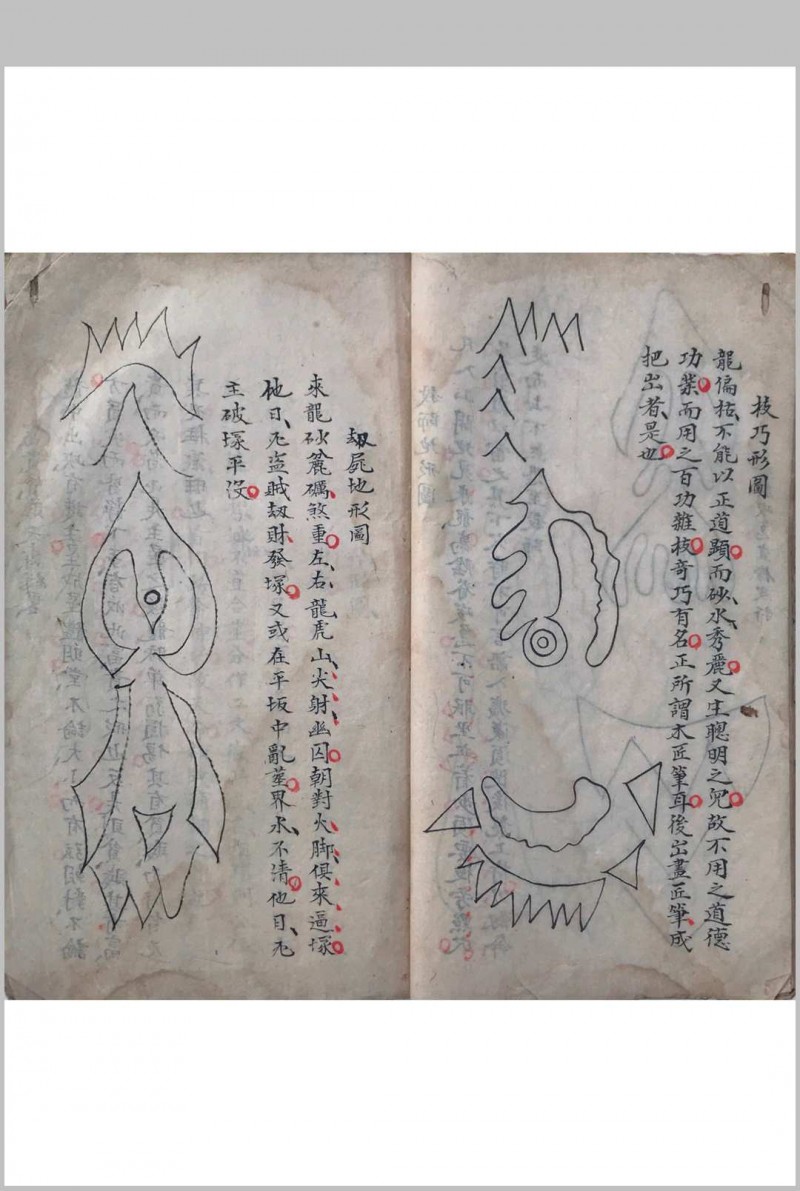 技巧形圖
龍偏枯不能以正道顕而砂水秀麗又生聰明之児故不用之道德
功業而用之百功雜技奇巧有名正所謂木匠筆耳後出畫匠筆成
把出者是也
刼屍地形圖
來龍砂麄礪煞重左右龍虎山尖射幽囚朝對火脚俱來逼塚
他日无盗賊刼財發塚又或在平坂中亂葬界水不清他日无
主破塚平没